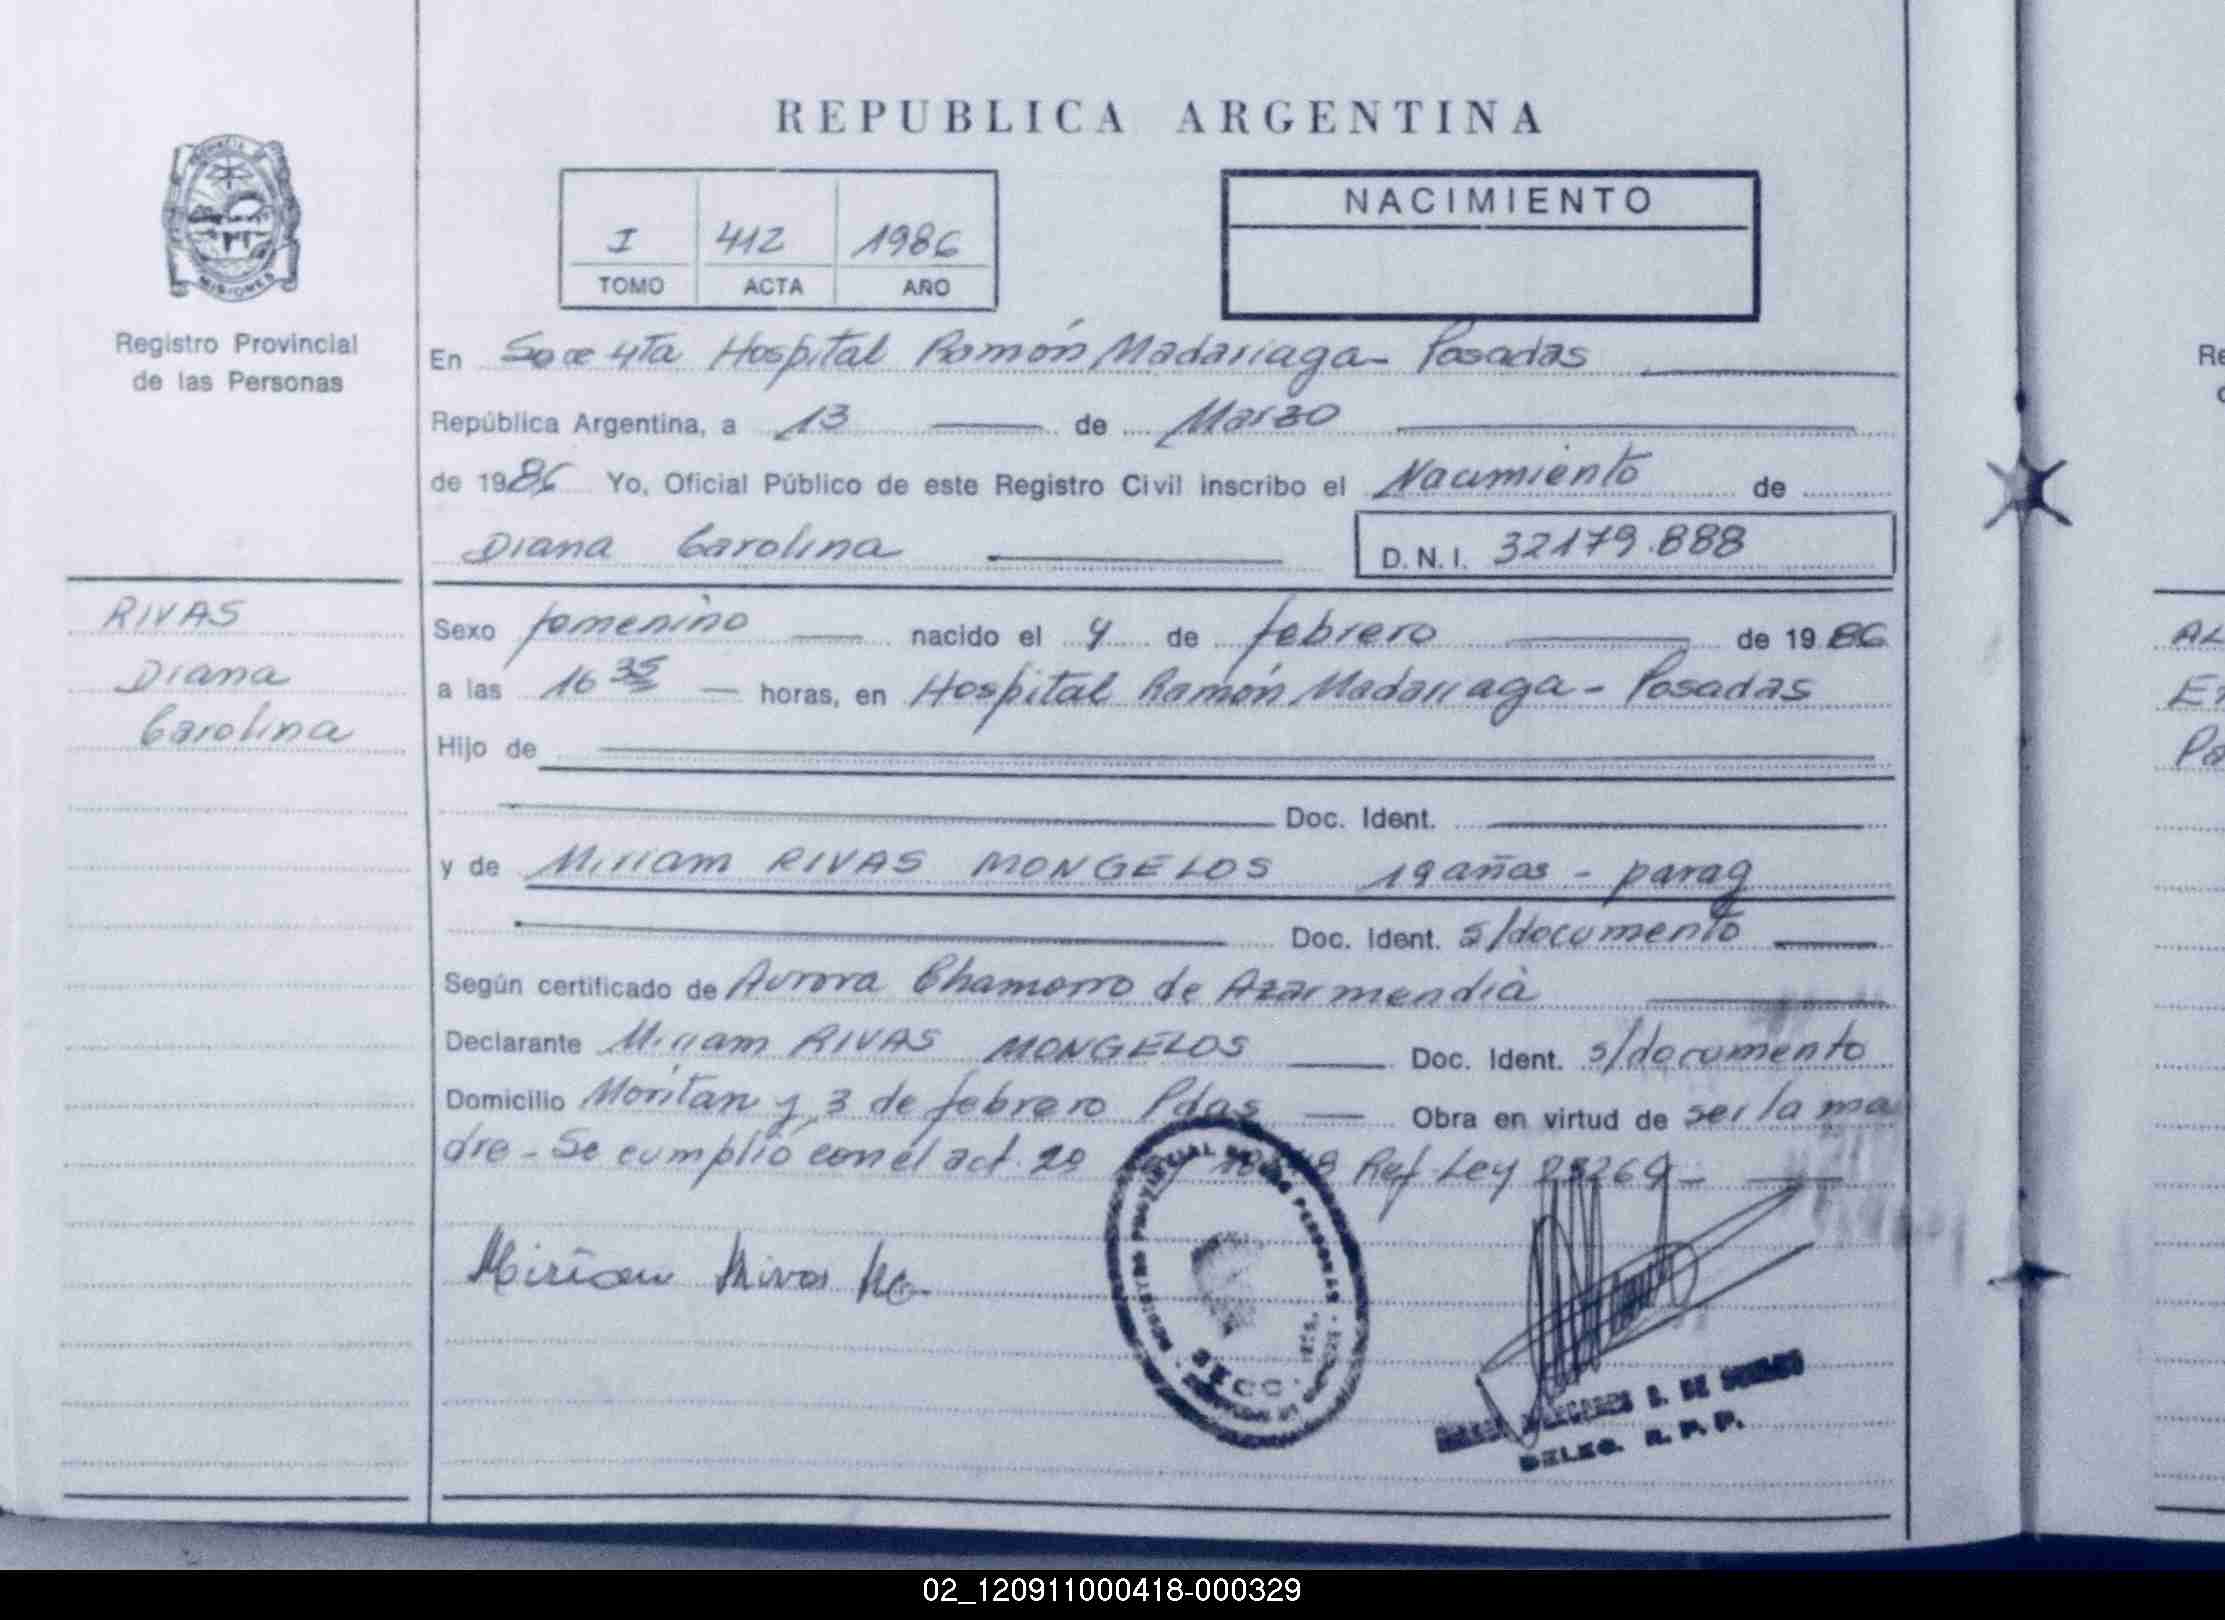 REPUBLICA ARGENTINA
PROVINCIA DE
MISIONES
Registro Provincial
de las Personas
I 412 1986
TOMO ACTA AÑO
NACIMIENTO
En Secc 4ta Hospital Ramón Madariaga - Posadas
República Argentina, a 13 de Marzo
de 1986 Yo, Oficial Público de este Registro Civil inscribo el Nacimiento de
Diana Carolina D.N.I. 32179.888
RIVAS
Diana
Carolina
Sexo femenino nacido el 4 de febrero de 1986
a las 16 35 horas, en Hospital Ramón Madariaga - Posadas
Hijo de
Doc. Ident.
y de Miriam RIVAS MONGELOS 19 años - parag
Doc. Ident. s/documento
Según certificado de Aurora Chamorro de Azarmendia
Declarante Miriam RIVAS MONGELOS Doc. Ident. s/documento
Domicilio Moritan y 3 de febrero Pdas Obra en virtud de ser la ma
dre - Se cumplió con el act. 29 Ref. Ley 23264 -
Miriam Rivas Mo
REGISTRO PROVINCIAL DE LAS PERSONAS
SECC.
S. DE
DELEG. R. P. P.
Re
AL
Po
02_120911000418-000329